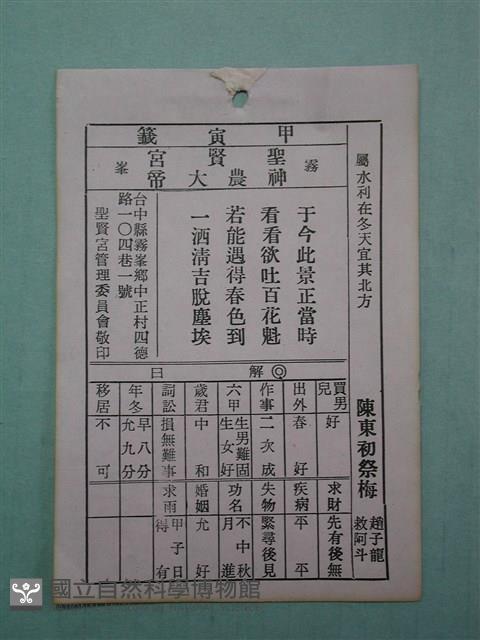 籤寅甲
霧峯
聖賢宮
神農大帝
屬水利在冬天宜其北方
陳東初祭梅
趙子龍
救阿斗
于今此景正當時
看看欲吐百花魁
若能遇得春色到
一洒清吉脫塵埃
台中縣霧峯鄉中正村四德
路一〇四巷一號
聖賢宮管理委員會敬印
曰解
買男兒 好
求財 先有後無
出外 春好
疾病 平平
作事 二次成
失物 緊尋後見
六甲 生男難固 生女好
功名 不中秋月進
歲君 中和
婚姻 允好
詞訟 損無難事
求雨 甲子日得有
年冬 早八分 允九分
移居 不可
國立自然科學博物館